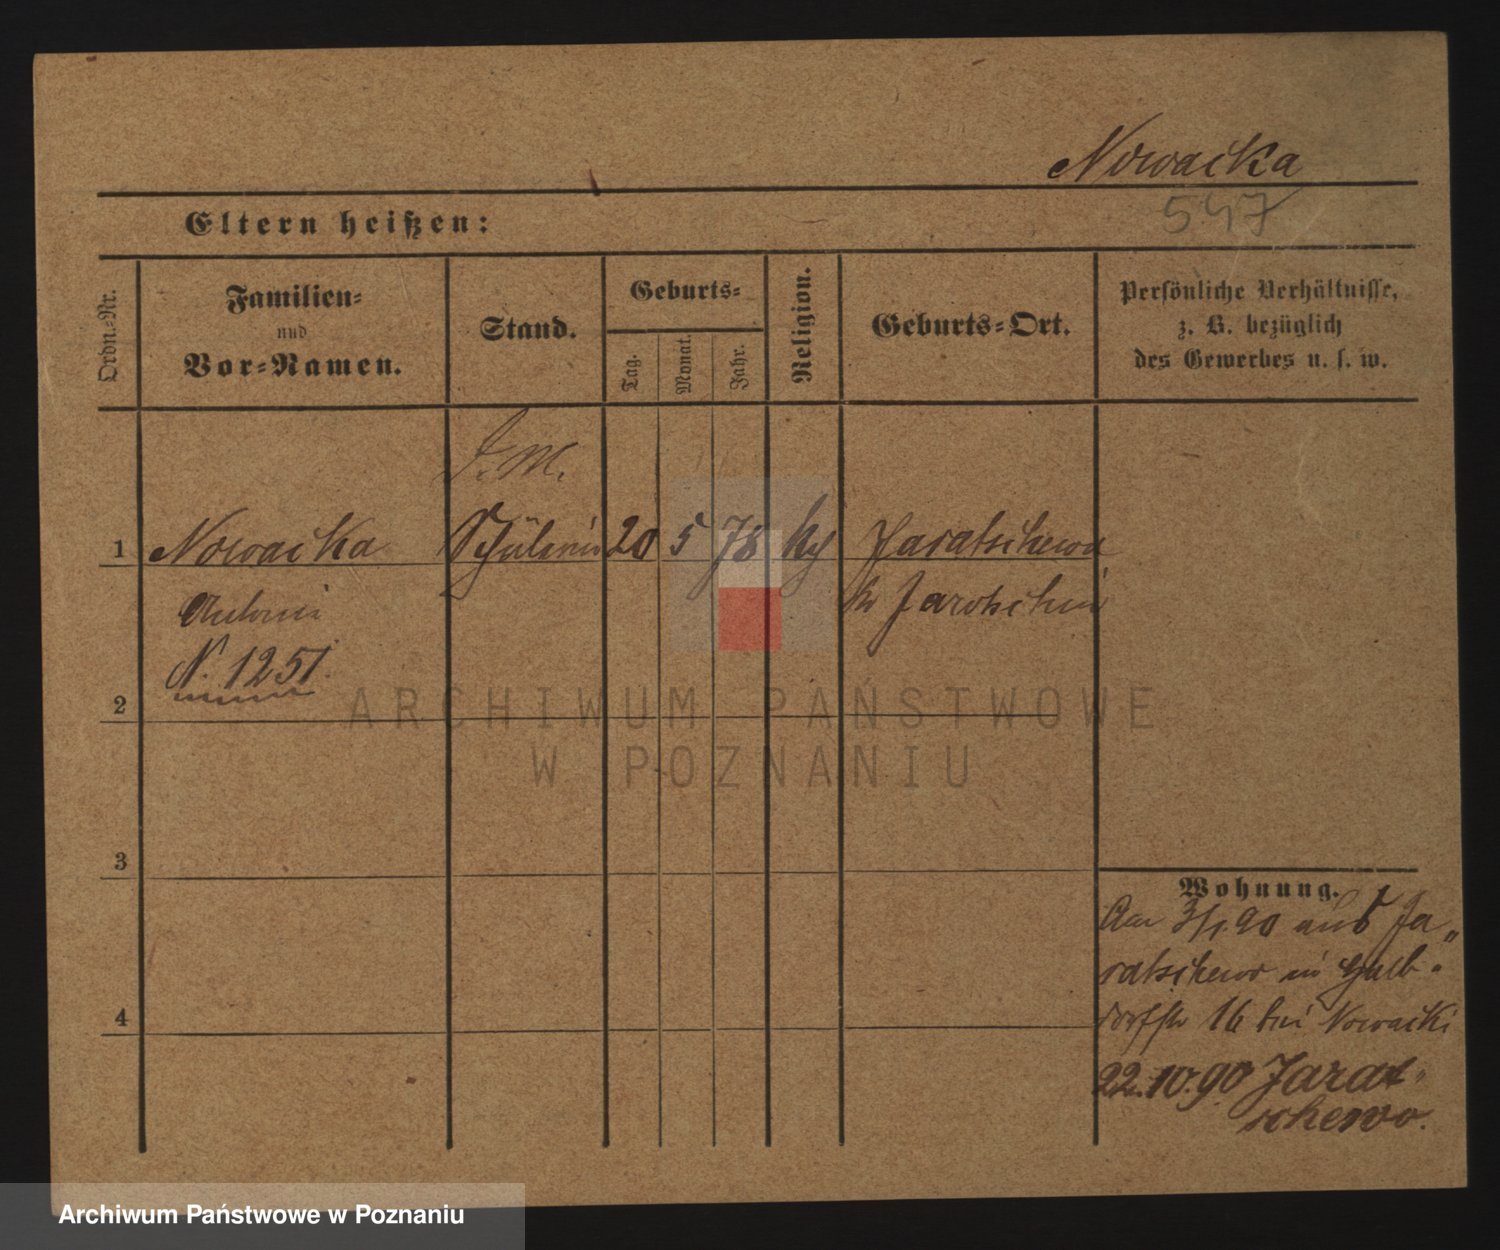 Nowacka
547
Eltern heißen:
Ordn.-Nr.
Familien-
und
Vor-Namen.
Stand.
Geburts-
Tag.
Monat.
Jahr.
Religion.
Geburts-Ort.
Persönliche Verhältnisse,
z. B. bezüglich
des Gewerbes u. s. w.
D. M.
1 Nowacka Schülerin 20 5 78 Jaratschewo
Antonie Jarotschin
N. 1251.
2
ARCHIWUM PAŃSTWOWE
W POZNANIU
3
Wohnung.
90 aus Ja„
ratschewo in Halb-
dorfstr 16 bei Nowacki
4
22.10.90 Jarat„
schewo.
Archiwum Państwowe w Poznaniu